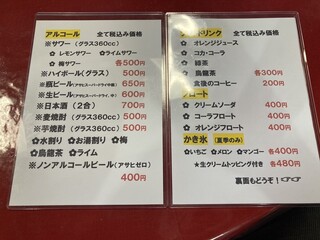 アルコール 全て税込み価格
※サワー（グラス360cc）
✿ レモンサワー ✿ライムサワー
✿ 梅サワー 各500円
※ハイボール（グラス） 500円
※瓶ビール（アサヒスーパードライ中瓶） 650円
※生ビール（アサヒスーパードライ、中） 600円
※日本酒（2合） 700円
※麦焼酎（グラス360cc） 500円
※芋焼酎（グラス360cc） 500円
✿水割り ✿お湯割り ✿梅
✿烏龍茶 ✿ライム
※ノンアルコールビール（アサヒゼロ）
400円
ドリンク 全て税込み価格
✿ オレンジジュース
✿ コカ・コーラ
✿ 緑茶
✿ 烏龍茶 各300円
✿ 食後のコーヒー 200円
フロート
✿ クリームソーダ 400円
✿ コーラフロート 400円
✿ オレンジフロート 400円
かき氷 （夏季のみ）
✿いちご ✿メロン ✿マンゴー 各400円
★生クリームトッピング付き 各480円
裏面もどうぞ！